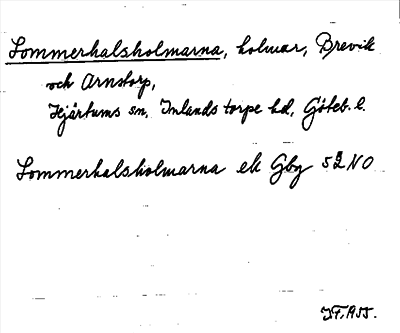 Sommerhalsholmarna, holmar, Brevik
och Arnstorp,
Hjärtums sn, Inlands torpe hd, Göteb. l.
Sommerhalsholmarna ek Gbg 52 NO